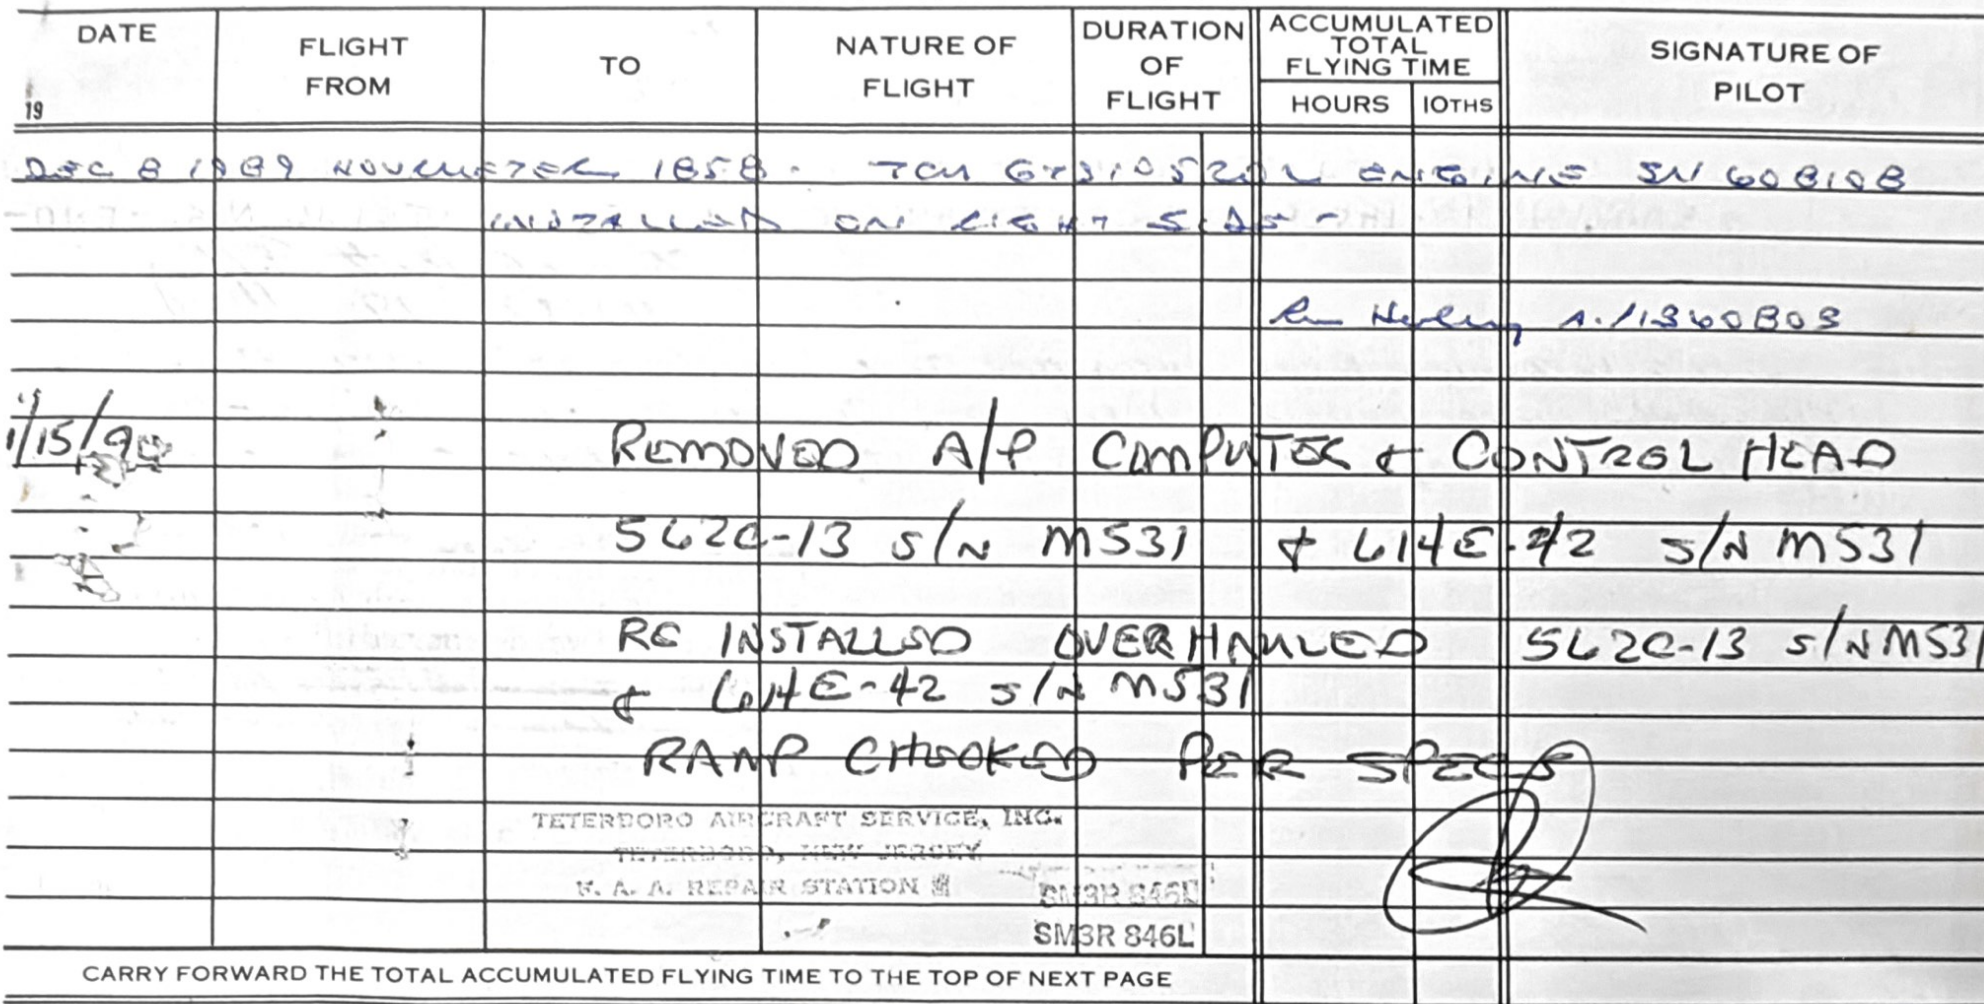 DATE FLIGHT FROM TO NATURE OF FLIGHT DURATION OF FLIGHT ACCUMULATED TOTAL FLYING TIME SIGNATURE OF PILOT
19 HOURS 10THS
DEC 8 1989 1858. TCM GTSIO520 ENGINE SN 608108
INSTALLED ON RIGHT SIDE
1360803
1/15/90 REMOVED A/P COMPUTER & CONTROL HEAD
562C-13 S/N M531 & 614E-42 S/N M531
RE INSTALLED OVERHAULED 562C-13 S/N M531
& 614E-42 S/N M531
RAMP CHECKED PER SPECS
TETERBORO AIRCRAFT SERVICE, INC.
TETERBORO, NEW JERSEY
F. A. A. REPAIR STATION # SM3R 846L
SM3R 846L
CARRY FORWARD THE TOTAL ACCUMULATED FLYING TIME TO THE TOP OF NEXT PAGE